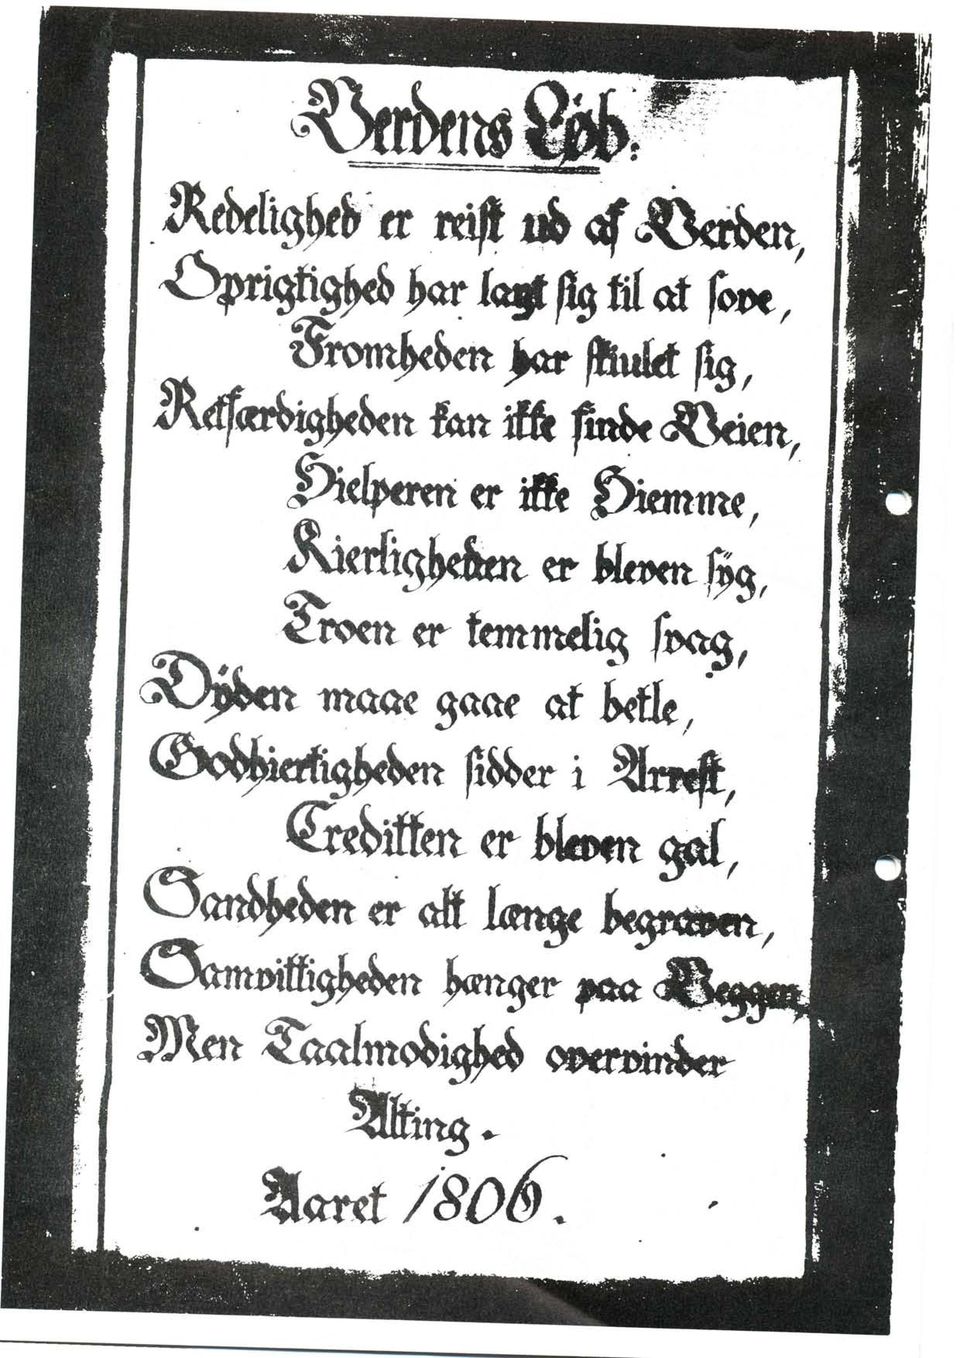 Verdens Løb.
Redelighed er reist ud af Verden,
Oprigtighed har lagt sig til at sove,
Fromheden har skiulet sig,
Retfærdigheden kan ikke finde Veien,
Hielperen er ikke Hiemme,
Kierligheden er bleven syg,
Troen er temmelig svag,
Dyden maae gaae at betle,
Godhiertigheden sidder i Arrest,
Creditten er bleven gal,
Sandheden er alt længe begraven,
Samvittigheden hænger paa Veggen,
Men Taalmodighed overvinder
Alting.
Aaret 1806.